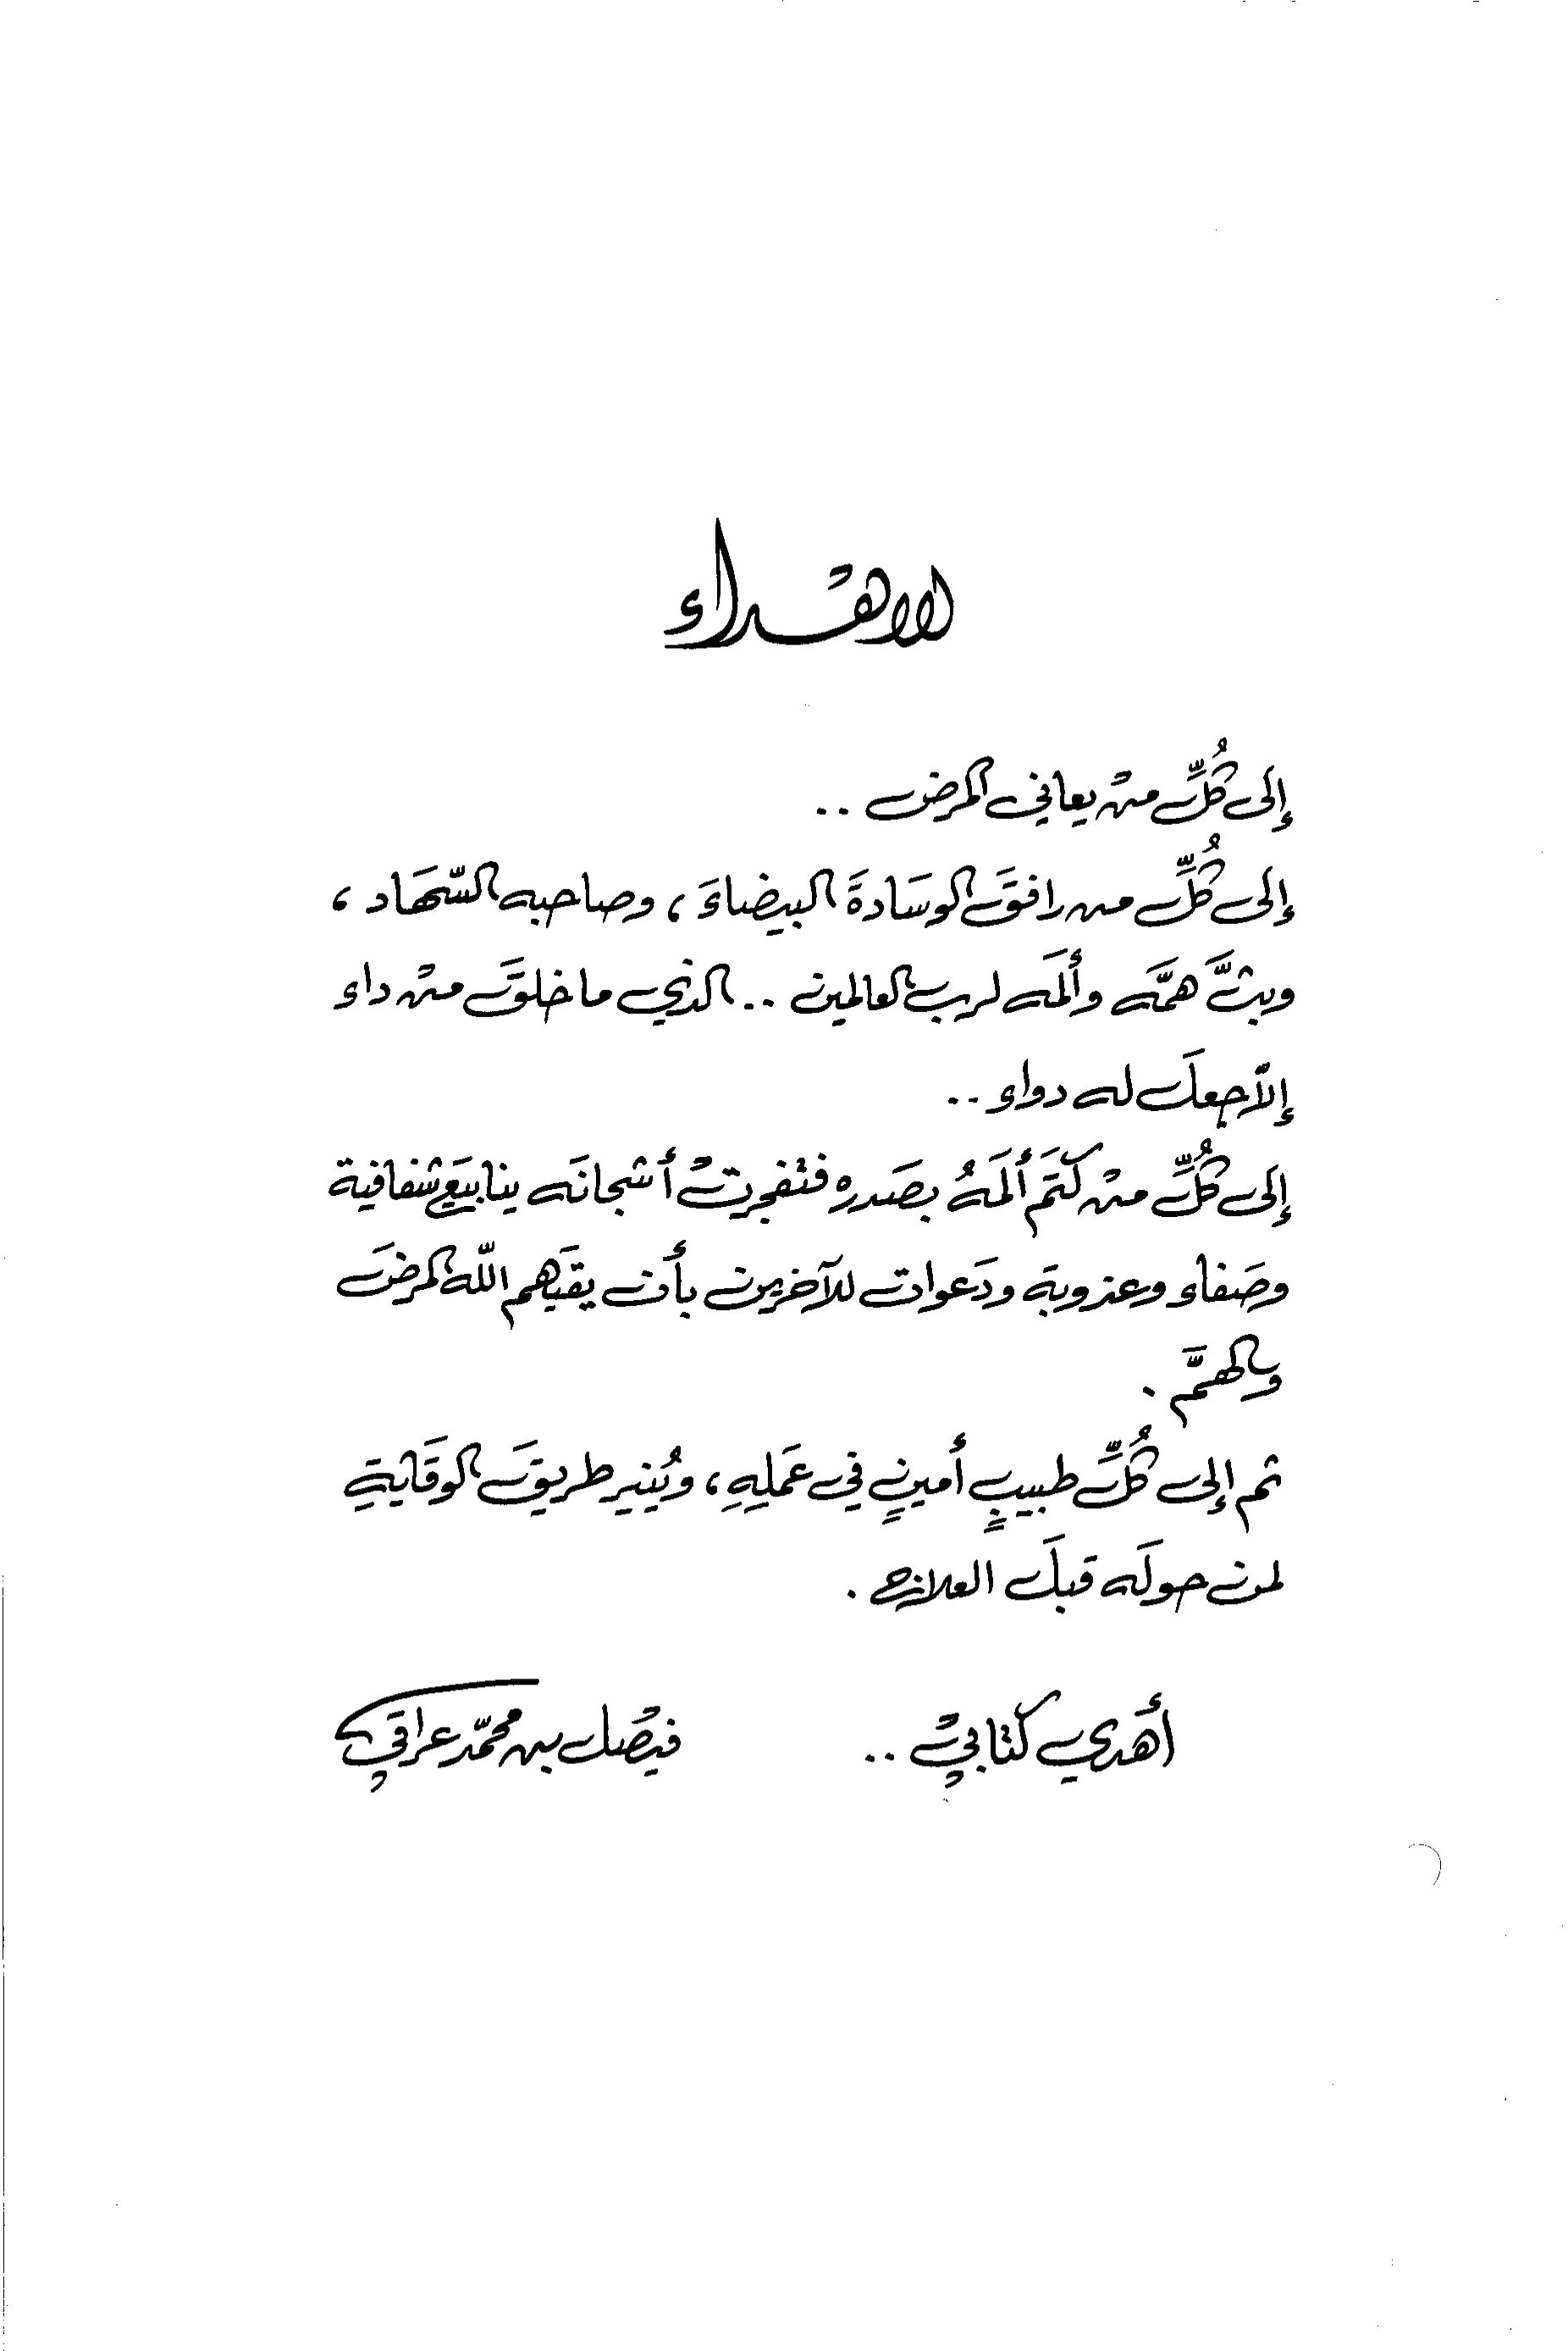 الاهداء
إلى كُلِّ منْ يعاني المرض ..
إلى كُلِّ من رافقَ الوسَادةَ البيضاءَ ، وصاحبه السّهَاد ،
وبثَّ همَّه وألمَه لرب العالمين .. الذي ما خلقَ منْ داء
إلاّ جعلَ له دواء ..
إلى كُلِّ منْ كتَمَ ألمَهُ بصَدره فتفجرتْ أشجانَه ينابيَع شفافية
وصَفاء وعذوبة ودَعوات للآخرين بأن يقيَهم اللّه المرضَ
والهمَّ .
ثم إلى كُلِّ طبيبٍ أمينٍ في عَملِهِ ، ويُنير طريقَ الوقَايةِ
لمن حولَه قبلَ العلاج .
أهْدي كتابيْ .. فيصْل بن محمّد عراقي